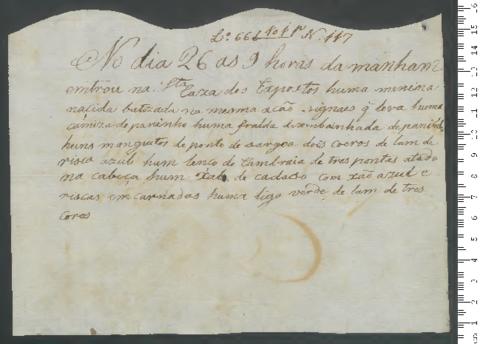 Lº. 664 fo 1 N. 117
No dia 26 as 9 horas da manham
emtrou na Sta Caza dos Expostos huma menina
nacida batizada na mesma acão signaes q leva huma
camiza de paninho huma fralda dezembainhada de paninho
huns manguitos de ponto de sargoa dois coeros de lam de
risca azul hum lenco de Cambraia de tres pontas atado
na cabeça hum de cadaco com xão azul e
riscas em carnadas huma liga verde de lam de tres
Cores